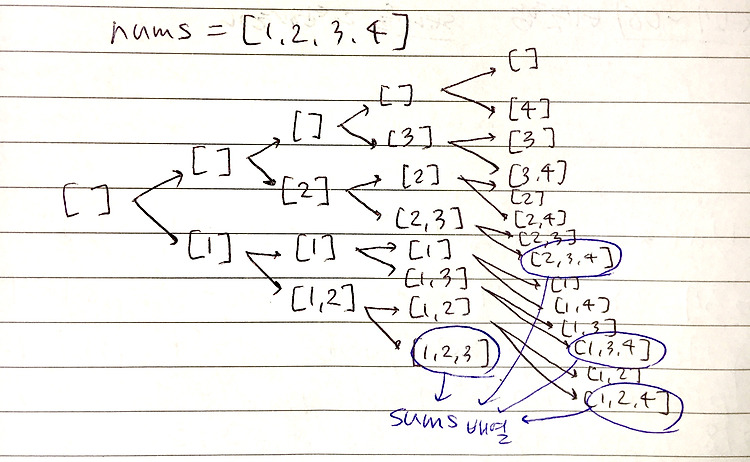 nums = [1,2,3,4]
[ ]
[ ]
[1]
[ ]
[2]
[1]
[1,2]
[ ]
[3]
[2]
[2,3]
[1]
[1,3]
[1,2]
[1,2,3]
[ ]
[4]
[3]
[3,4]
[2]
[2,4]
[2,3]
[2,3,4]
[1]
[1,4]
[1,3]
[1,3,4]
[1,2]
[1,2,4]
sums 배열